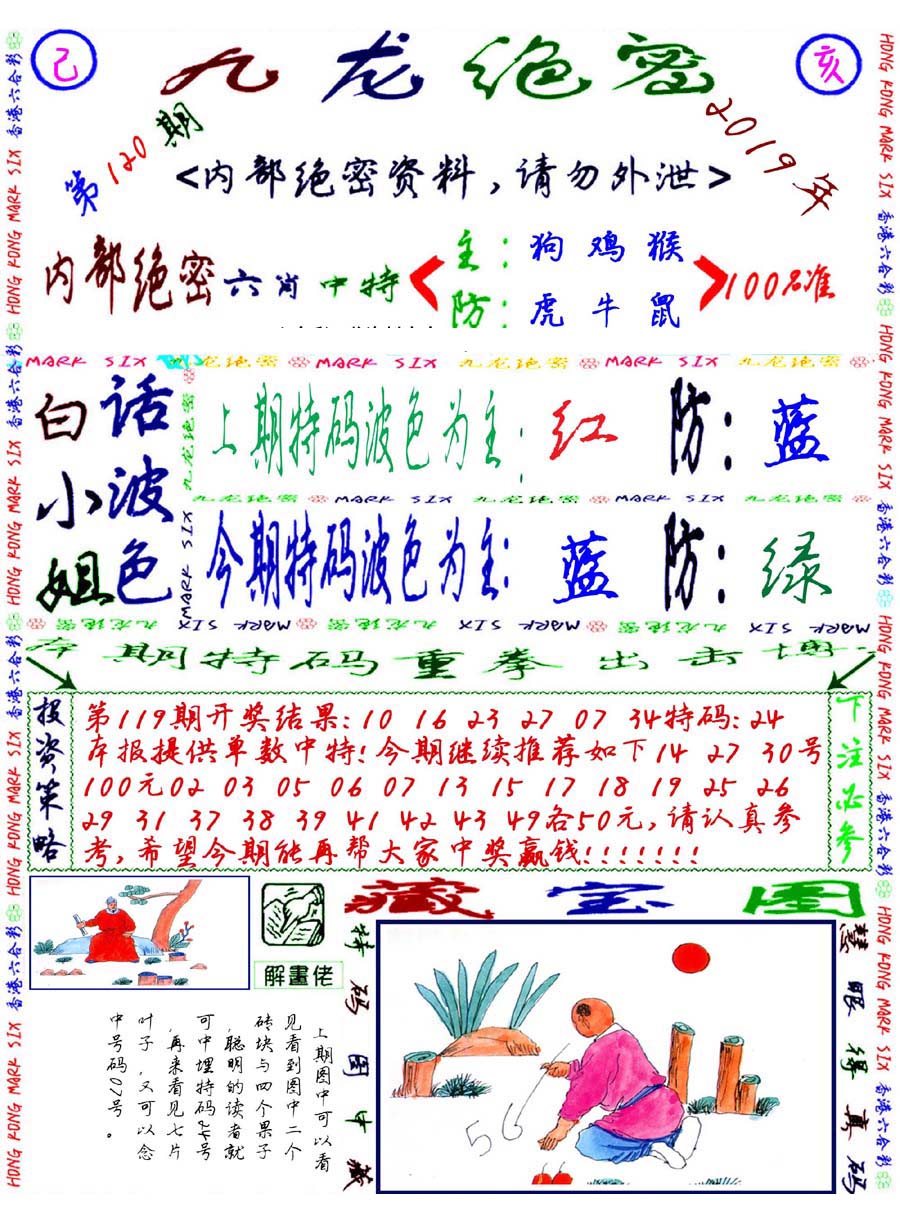 己
九龙绝密
亥
第120期
2019年
<内部绝密资料，请勿外泄>
内部绝密六肖中特
主：狗 鸡 猴
防：虎 牛 鼠
100%准
MARK SIX 九龙绝密 MARK SIX 九龙绝密 MARK SIX 九龙绝密
白话
小波
姐色
上期特码波色为主：红 防：蓝
九龙绝密 MARK SIX 九龙绝密 MARK SIX 九龙绝密
今期特码波色为主：蓝 防：绿
九龙绝密 MARK SIX
MARK SIX 九龙绝密 MARK SIX 九龙绝密 MARK SIX 九龙绝密
本期特码重拳出击博
投资策略
第119期开奖结果：10 16 23 27 07 34特码：24
本报提供单数中特！今期继续推荐如下14 27 30号
100元02 03 05 06 07 13 15 17 18 19 25 26
29 31 37 38 39 41 42 43 49各50元，请认真参
考，希望今期能再帮大家中奖赢钱！！！！！！！
下注必参
藏宝图
解畫佬
上期图中可以看
见看到图中二个
砖块与四个果子
，聪明的读者就
可中埋特码24号
，再来看见七片
叶子，又可以念
中号码07号。
特码图中藏
56
慧眼得真码
HONG KONG MARK SIX 香港六合彩 HONG KONG MARK SIX 香港六合彩 HONG KONG MARK SIX 香港六合彩 HONG KONG MARK SIX 香港六合彩
HONG KONG MARK SIX 香港六合彩 HONG KONG MARK SIX 香港六合彩 HONG KONG MARK SIX 香港六合彩 HONG KONG MARK SIX 香港六合彩